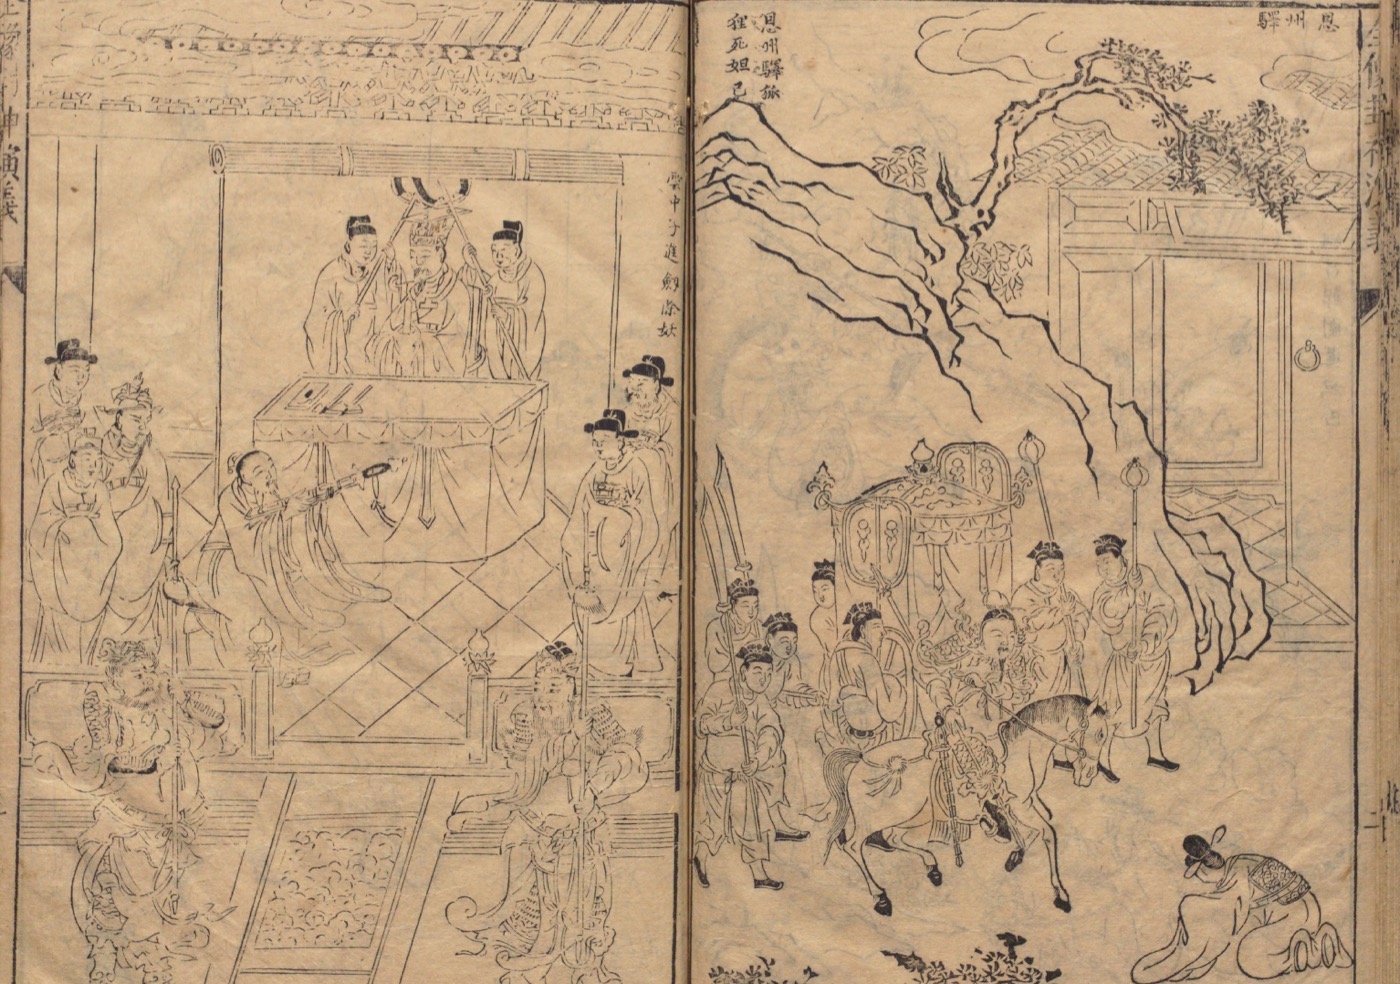 恩州驛
恩州驛狐
狸死妲己
雲中子進劍除妖
封神演義